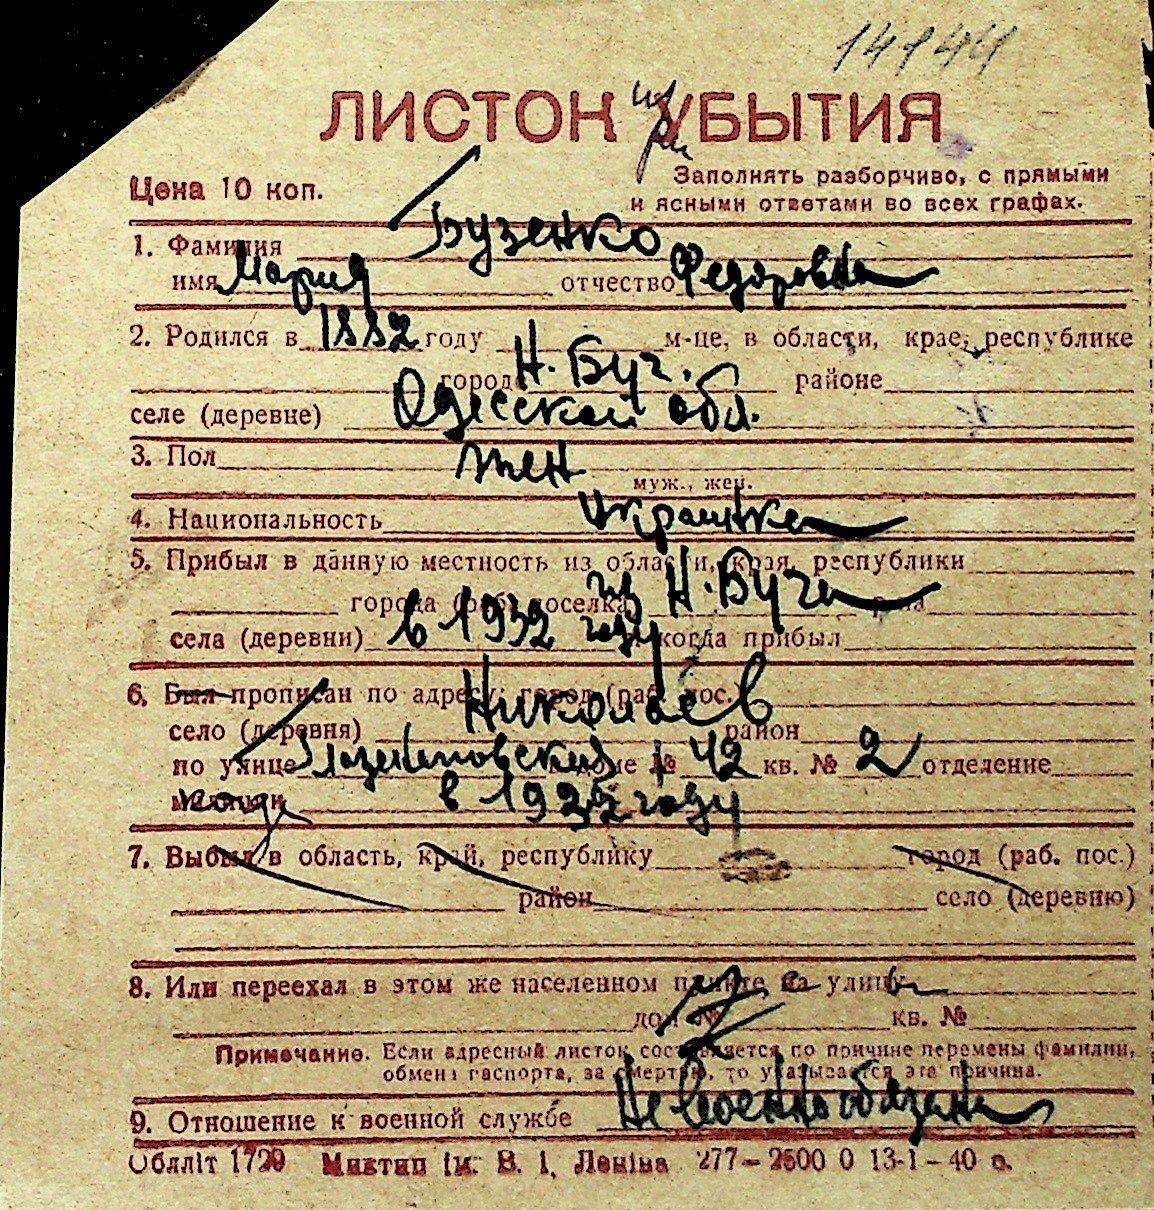 14144
ЛИСТОК УБЫТИЯ
Цена 10 коп.
Заполнять разборчиво, с прямыми
и ясными ответами во всех графах.
1. Фамилия Бузенко
имя Мария отчество Федоровна
2. Родился в 1882 году м-це, в области, крае, республике
город Н. Буг. районе
селе (деревне) Одесской обл.
3. Пол жен
муж., жен.
4. Национальность Украинка
5. Прибыл в данную местность из области, края, республики
города (раб. поселка) из Н. Буга
села (деревни) в 1932 году когда прибыл
6. Был прописан по адресу: город (раб. пос.) Николаев
село (деревня) район
по улице доме № 42 кв. № 2 отделение
милиции в 1932 году
7. Выбыл в область, край, республику город (раб. пос.)
район село (деревню)
8. Или переехал в этом же населенном пункте на улицу
дом № кв. №
Примечание. Если адресный листок составляется по причине перемены фамилии,
обмена паспорта, за смертью, то указывается эта причина.
9. Отношение к военной службе Не военнообязана
Обліт 1729 Миктип ім. В. І. Леніна 277—2500 0 13-1-40 р.